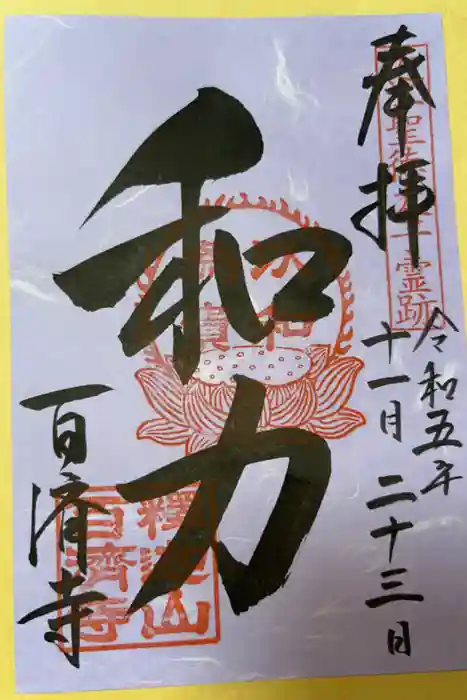 奉拝
聖徳太子霊跡
令和五年
十一月二十三日
和力
以和為貴
百済寺
釋迦山百濟寺